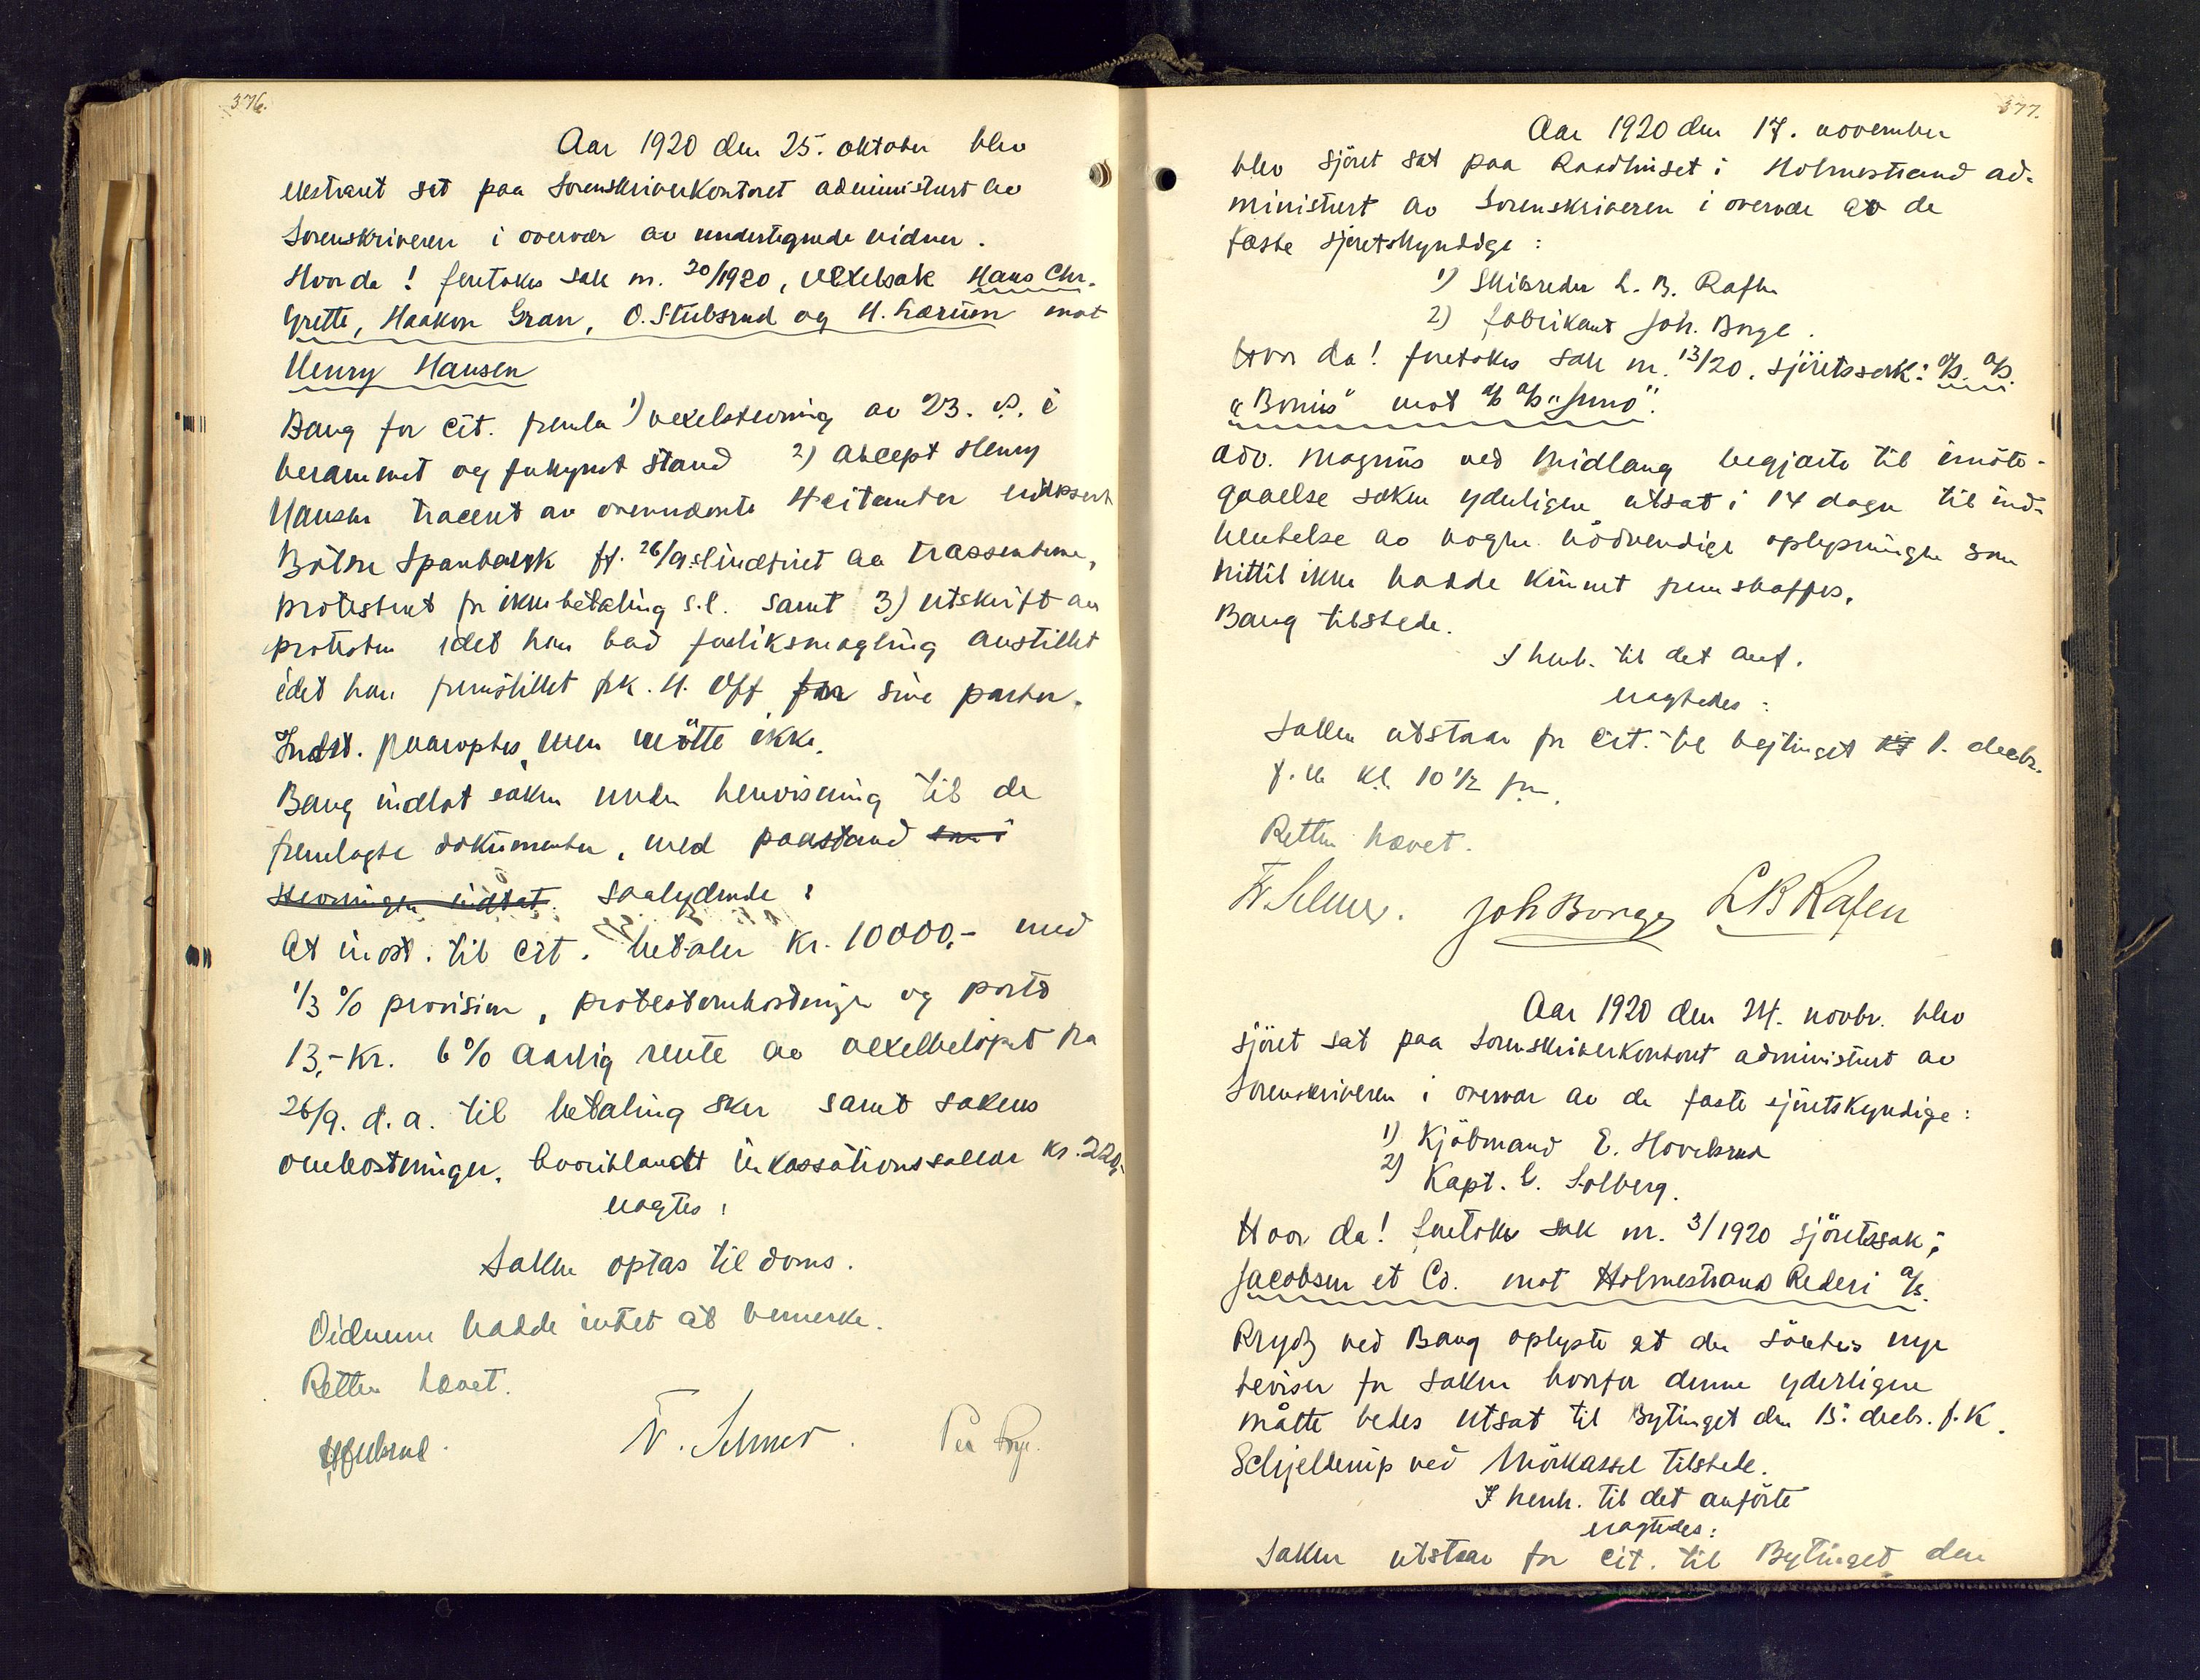 376.
Aar 1920 den 25. oktober blev
ekstraret sat paa Sorenskriverkontoret administert av
Sorenskriveren i overvær av undertegnede vidner.
Hvor da! foretokes sak nr. 20/1920, vexelsak Hans Chr.
Grette, Haakon Gran, O. Stubsrud og H. Lærum mot
Henry Hansen
Bang for cit. fremla 1) vexelstevning av 23. ds. i
berammet og forkynt stand 2) accept Henry
Hansen traceret av ovennævnte 4 citanter
Botne Sparebank ff. 26/9 av trassentene,
protestert for ikke betaling s.d. samt 3) utskrift av
protesten idet han bad forliksmægling anstillet
idet han fremstillet frk. H. Off for sine parter.
Indst. paaroptes, men møtte ikke.
Bang indlot saken under henvisning til de
fremlagte dokumenter, med paastand som i
stevningen indtat saalydende:
At inst. til cit. betaler kr. 10000,- med
1/3 % provision, protestomkostninger og porto
13,- kr. 6 % aarlig rente av vexelbeløpet fra
26/9. d.a. til betaling sker samt sakens
omkostninger, hvoriblandt inkassationssallær kr. 220,-
eragtes:
Saken optas til doms.
Vidnerne hadde intet at bemerke.
Retten hævet.
F. Selmer.
377.
Aar 1920 den 17. november
blev sjöret sat paa Raadhuset i Holmestrand ad-
ministert av Sorenskriveren i overvær av de
faste sjöretskyndige:
1) Skibsreder L. B. Rafen
2) fabrikant Joh. Borge.
Hvor da! foretokes sak nr. 13/20. sjöretssak: A/S. A/S.
"Bonus" mot A/S A/S "Juno".
Adv. Magnus ved Midlang begjærte til imöte-
gaaelse saken yderligere utsat i 14 dager til ind-
hentelse av nogen nödvendige oplysninger som
hittil ikke hadde kunnet fremskaffes.
Bang tilstede.
I henh. til det anf.
eragtedes:
Saken utstaar for cit. til bytinget 1. decbr.
kl. 10 1/2 fm.
Retten hævet.
F. Selmer. Joh Borge L B Rafen
Aar 1920 den 24. novbr. blev
sjöret sat paa Sorenskriverkontoret administert av
Sorenskriveren i overvær av de faste sjöretskyndige:
1) Kjöbmand E. Hovebrud
2) Kapt. C. Solberg.
Hvor da! foretokes sak nr. 3/1920 sjöretssak;
Jacobsen et Co. mot Holmestrand Rederi A/S.
Krydz ved Bang oplyste at der söktes nye
beviser for saken hvorfor denne yderligere
måtte bedes utsat til Bytinget den 15. decbr. f.k.
Schjelderup ved Mörkassel tilstede.
I henh. til det anförte
eragtedes:
Saken utstaar for cit. til Bytinget den